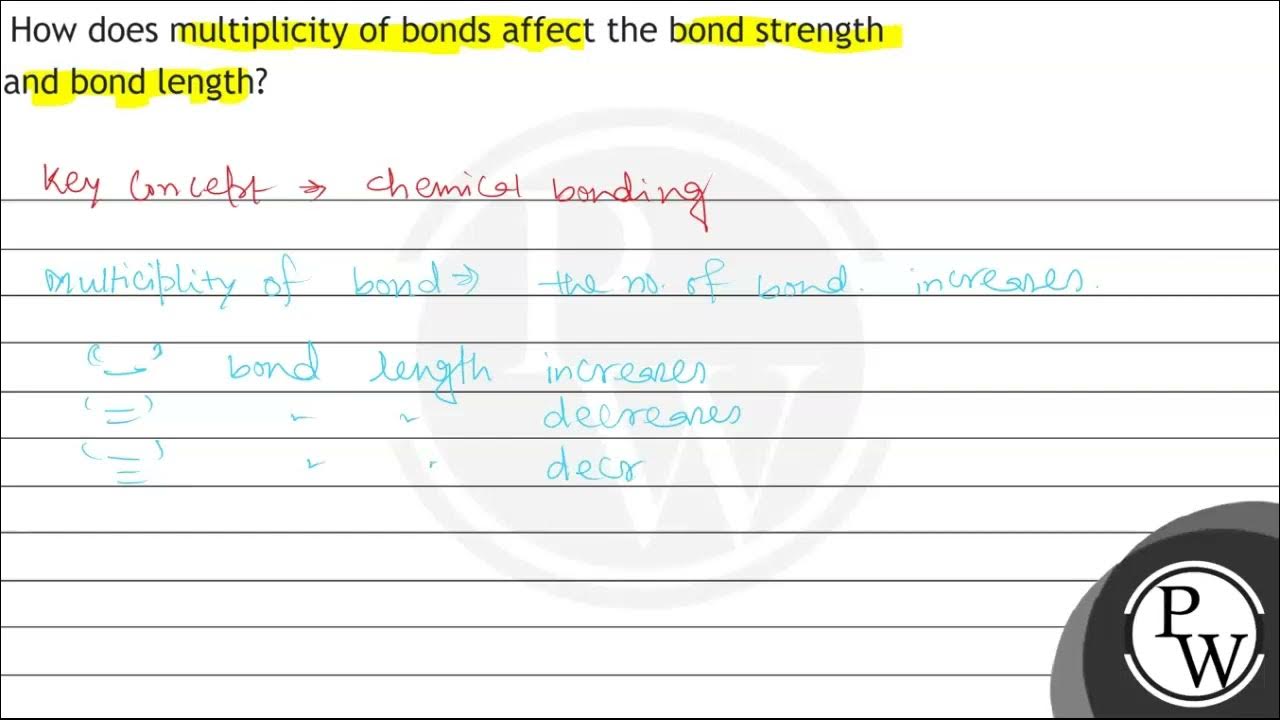 How does multiplicity of bonds affect the bond strength
and bond length?
Key Concept ⇒ Chemical bonding
Multiciplity of bond ⇒ the no. of bond. increases.
(—) bond length increases
(=) " " decreases
(≡) " " decr
PW
PW